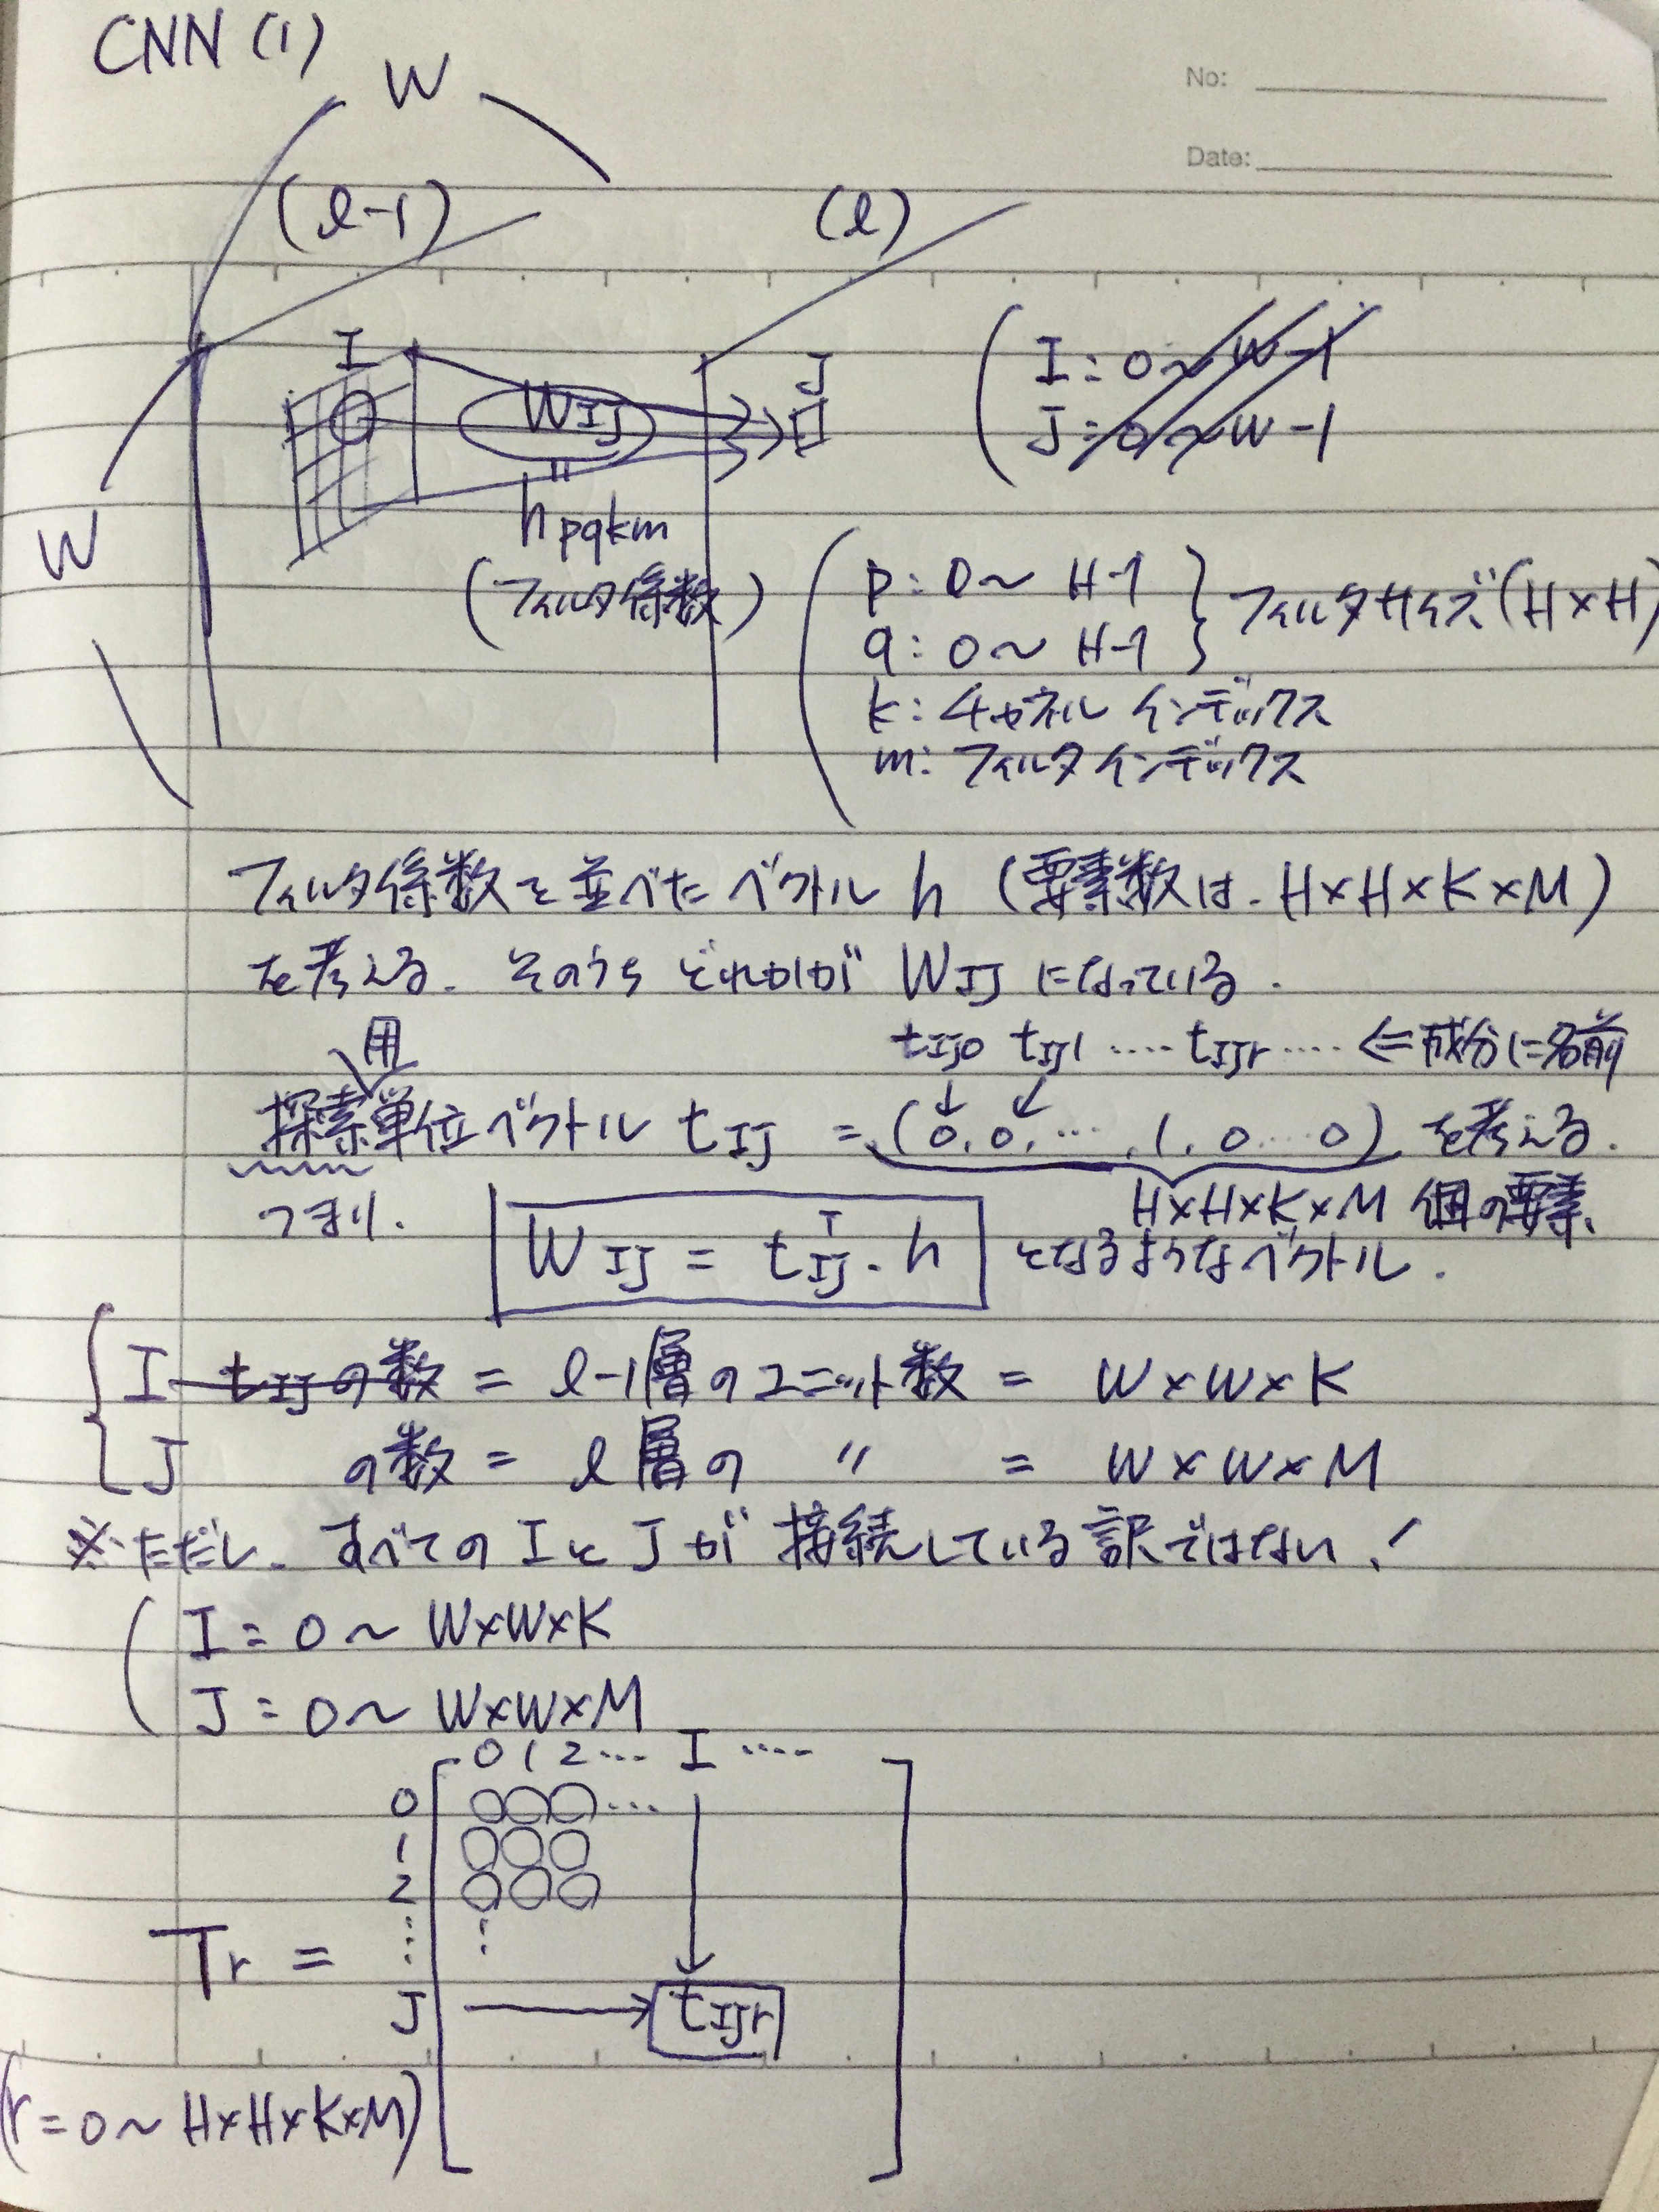 CNN (1)
No:
Date:
W
(l-1)
(l)
I
J
W
W_IJ
=
h_pqkm
(フィルタ係数)
I: 0~W-1
J: 0~W-1
p: 0~H-1
q: 0~H-1
フィルタサイズ(H×H)
k: チャネルインデックス
m: フィルタインデックス
フィルタ係数を並べたベクトル h (要素数は、H×H×K×M)
を考える。そのうちどれかが W_IJ になっている。
t_IJ0 t_IJ1 .... t_IJr .... ⇐成分に名前
用
探索単位ベクトル t_IJ = (0, 0, ..., 1, 0...0) を考える。
H×H×K×M 個の要素
つまり、 W_IJ = t_IJ^T · h となるようなベクトル。
I t_IJの数 = l-1層のユニット数 = W×W×K
J の数 = l層の 〃 = W×W×M
※ただし、すべての I と J が接続している訳ではない!
I = 0~W×W×K
J = 0~W×W×M
0 1 2 ... I ....
0 ○○○...
1 ○○○
2 ○○○
⋮ ⋮
Tr =
J → t_IJr
(r=0~H×H×K×M)